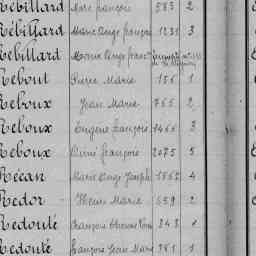 Rébillard Marc françois 583 2
Rébillard Marie Ange françois 1231 3
Rebillard Marie Ange franc
Rebout Pierre Marie 156 1
Reboux Jean Marie 765 2
Reboux Eugene françois 1466 3
Reboux René françois 2075 5
Récan Marie Ange Joseph 1862 4
Redor Henri Marie 659 2
Redouté François 243 1
Redouté françois Jean Marie 281 1